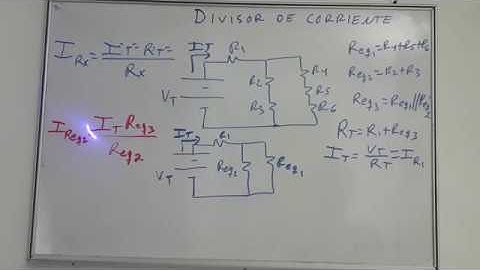 DIVISOR DE CORRIENTE
I_RX = IT · RT / RX
IT
R1
R2
R3
R4
R5
R6
VT
Req1 = R4+R5+R6
Req2 = R2+R3
Req3 = Req1||Req2
RT = R1+Req3
IT = VT / RT = I_R1
I_Req2 = IT Req3 / Req2
IT
R1
VT
Req2
Req1